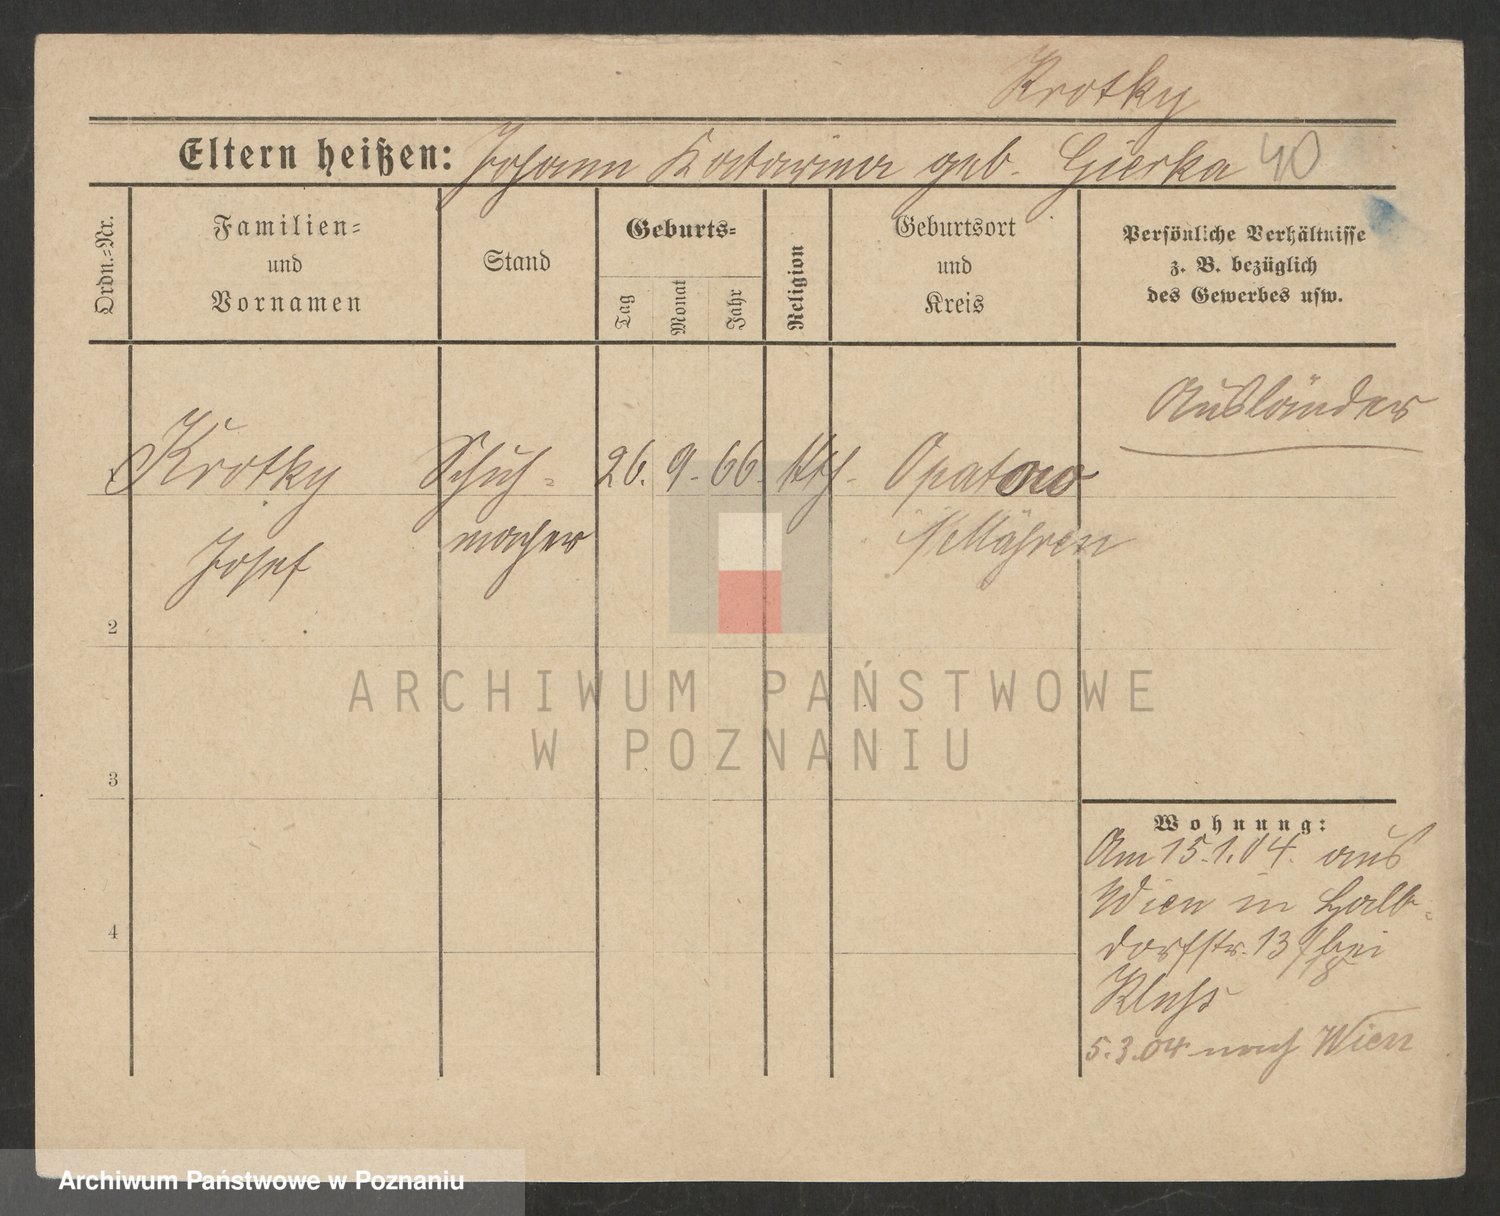 Krotky
Eltern heißen: Johann Katarina geb. Gierka 40
Ordn.=Nr.
Familien=
und
Vornamen
Stand
Geburts=
Tag
Monat
Jahr
Religion
Geburtsort
und
Kreis
Persönliche Verhältnisse
z. B. bezüglich
des Gewerbes usw.
Ausländer
1 Krotky Schuh= 26. 9. 66. kth. Opatow
Josef macher i/ Mähren
2
ARCHIWUM PAŃSTWOWE
W POZNANIU
3
Wohnung:
Am 15.1.04. aus
Wien in Halb=
dorfstr. 13 bei
5.3.04 nach Wien
4
Archiwum Państwowe w Poznaniu